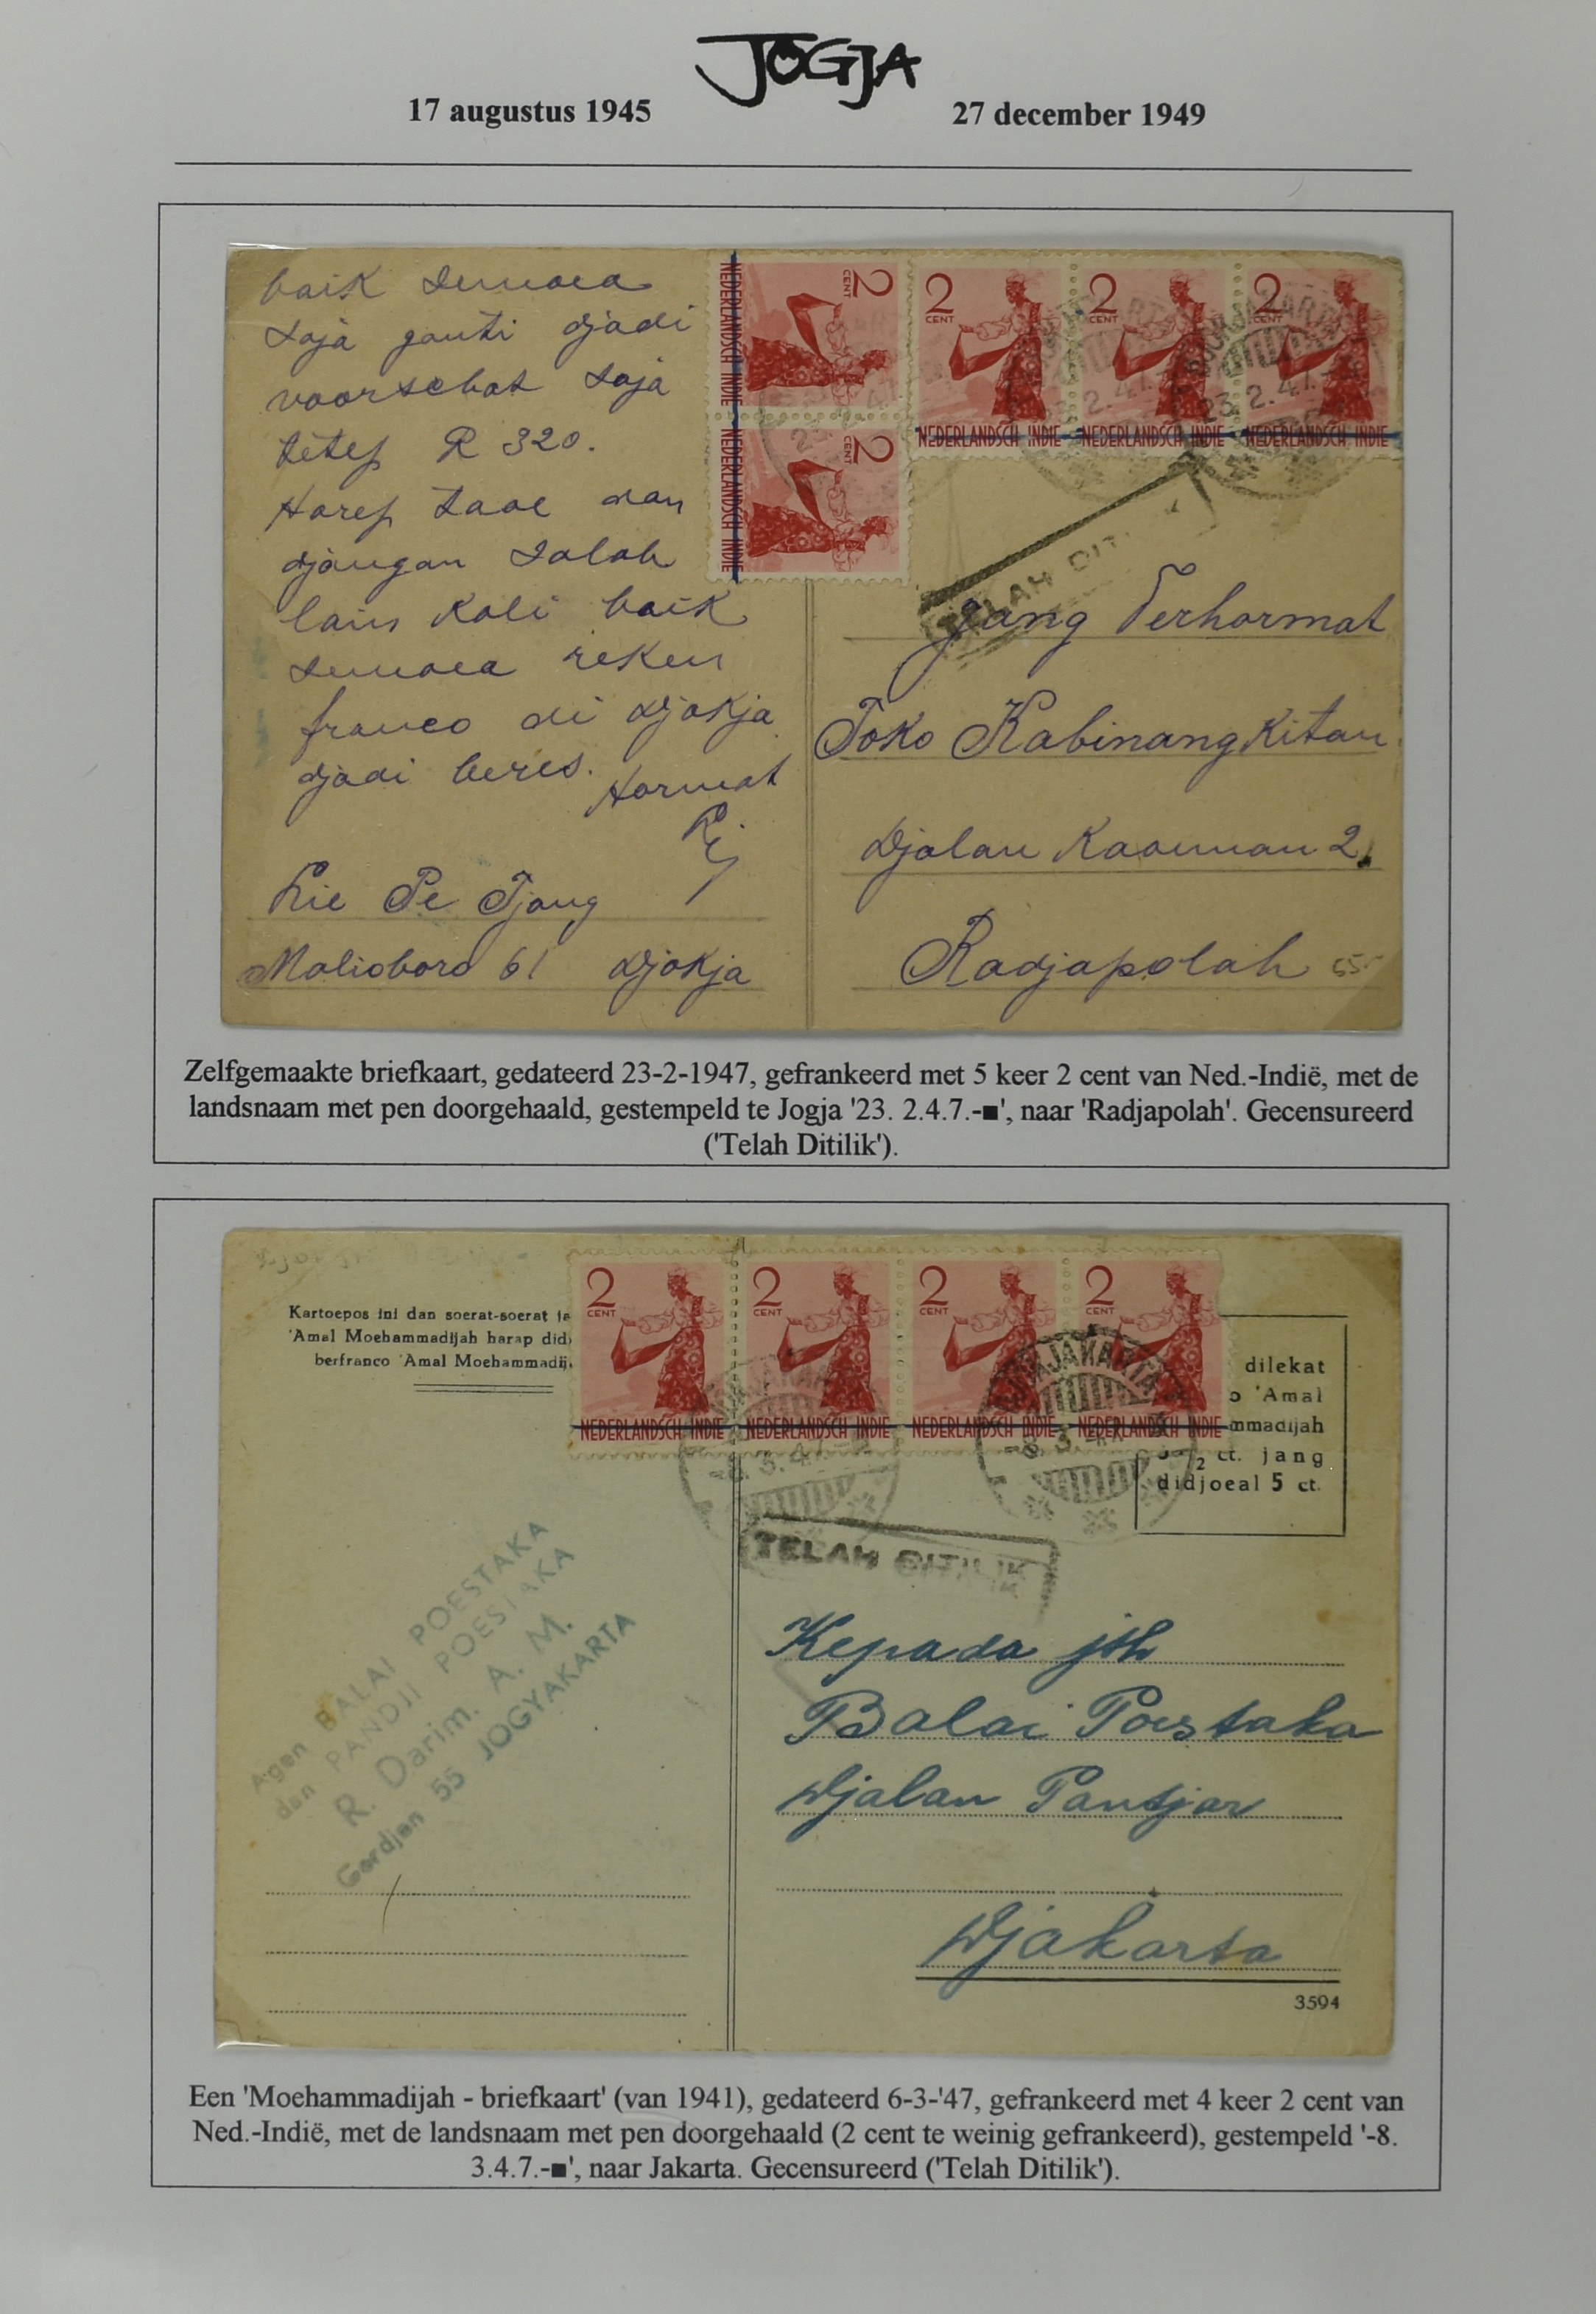 JOGJA
17 augustus 1945
27 december 1949
baik semoea
saja ganti djadi
voorschot saja
tetep R 320.
Harep taoe dan
djangan salah
lain kali baik
semoea reken
franco di Djokja
djadi beres.
Hormat
Lie Pe Tjong
Malioboro 61 Djokja
2 CENT
NEDERLANDSCH INDIE
2 CENT
NEDERLANDSCH INDIE
2 CENT
NEDERLANDSCH INDIE
2 CENT
NEDERLANDSCH INDIE
2 CENT
NEDERLANDSCH INDIE
23. 2. 47.
TELAH DIT
Jang Terhormat
Toko Kabinangkitan
Djalan Kaoeman 2
Radjapolah
55
Zelfgemaakte briefkaart, gedateerd 23-2-1947, gefrankeerd met 5 keer 2 cent van Ned.-Indië, met de
landsnaam met pen doorgehaald, gestempeld te Jogja '23. 2.4.7.-■', naar 'Radjapolah'. Gecensureerd
('Telah Ditilik').
Kartoepos ini dan soerat-soerat
'Amal Moehammadijah harap did
berfranco 'Amal Moehammadij
2 CENT
NEDERLANDSCH INDIE
2 CENT
NEDERLANDSCH INDIE
2 CENT
NEDERLANDSCH INDIE
2 CENT
NEDERLANDSCH INDIE
DJOKJAKARTA
-8. 3. 47
dilekat
o 'Amal
mmadijah
2 ct. jang
didjoeal 5 ct.
TELAH DITILIK
Agen BALAI POESTAKA
dan PANDJI POESTAKA
R. Darim. A. M.
Gardjen 55 JOGYAKARTA
Kepada jth
Balai Poestaka
Djalan Pantjar
Djakarta
3594
Een 'Moehammadijah - briefkaart' (van 1941), gedateerd 6-3-'47, gefrankeerd met 4 keer 2 cent van
Ned.-Indië, met de landsnaam met pen doorgehaald (2 cent te weinig gefrankeerd), gestempeld '-8.
3.4.7.-■', naar Jakarta. Gecensureerd ('Telah Ditilik').